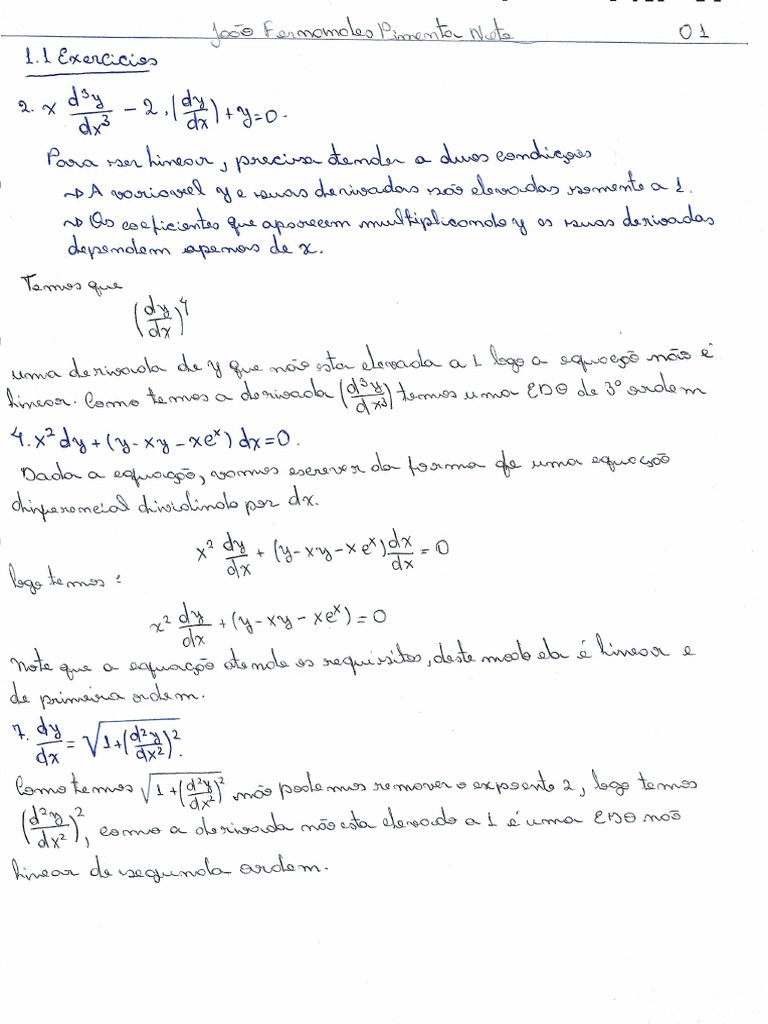 João Fernandes Pimenta Neto 01
1.1 Exercicios
2. x d³y/dx³ - 2.(dy/dx) + y = 0.
Para ser linear, precisa atender a duas condições
→ A variavel y e suas derivadas são elevadas somente a 1.
→ Os coeficientes que aparecem multiplicando y os suas derivadas
dependem apenas de x.
Temos que
(dy/dx)⁴
uma derivada de y que não esta elevada a 1 logo a equação não é
linear. Como temos a derivada (d³y/dx³) temos uma EDO de 3º ordem
4. x² dy + (y - xy - xeˣ) dx = 0.
Dada a equação, vamos escrever da forma de uma equação
diferencial dividindo por dx.
x² dy/dx + (y - xy - xeˣ) dx/dx = 0
logo temos:
x² dy/dx + (y - xy - xeˣ) = 0
Note que a equação atende os requisitos, deste modo ela é linear e
de primeira ordem.
7. dy/dx = √(1 + (d²y/dx²)²).
Como temos √(1 + (d²y/dx²)²) não podemos remover o expoente 2, logo temos
(d²y/dx²)², como a derivada não esta elevado a 1 é uma EDO não
linear de segunda ordem.